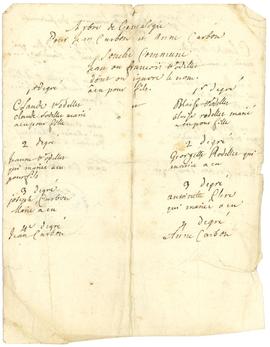 Arbre de Genealogie
Pour Jean Carbon et Anne Carbon
Souche Commune
jean ou francois Rodellec
dont on ignore le nom
a eu pour fils
1er degré
Claude Rodellec
claude Rodellec marié
a eu pour fille
2 degré
Jeanne Rodellec
qui mariée a eu
pour fils
3 degré
joseph Carbon
Marié a eu
4e degré
Jean Carbon
1er degré
Blaise Rodellec
blaise rodellec marié
a eu pour fille
2 degré
Rodellec qui
mariée a eu
3 degré
antoinette
qui mariée a eu
4 degré
Anne Carbon